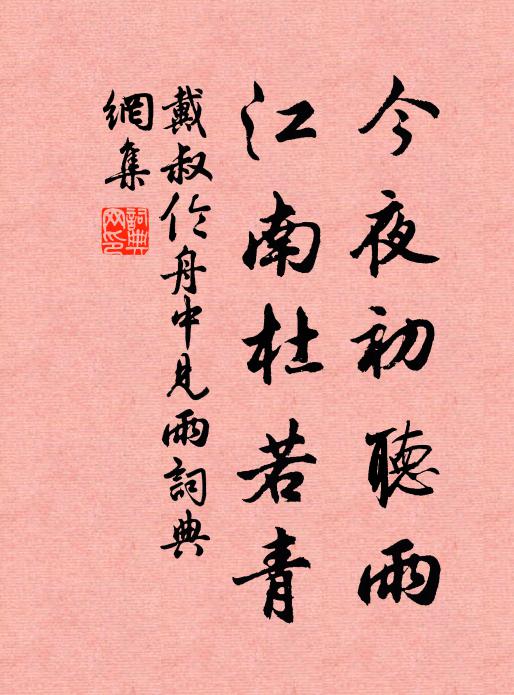 今夜初聽雨
江南杜若青
戴叔伦舟中見雨詞典
網集
詞典网印